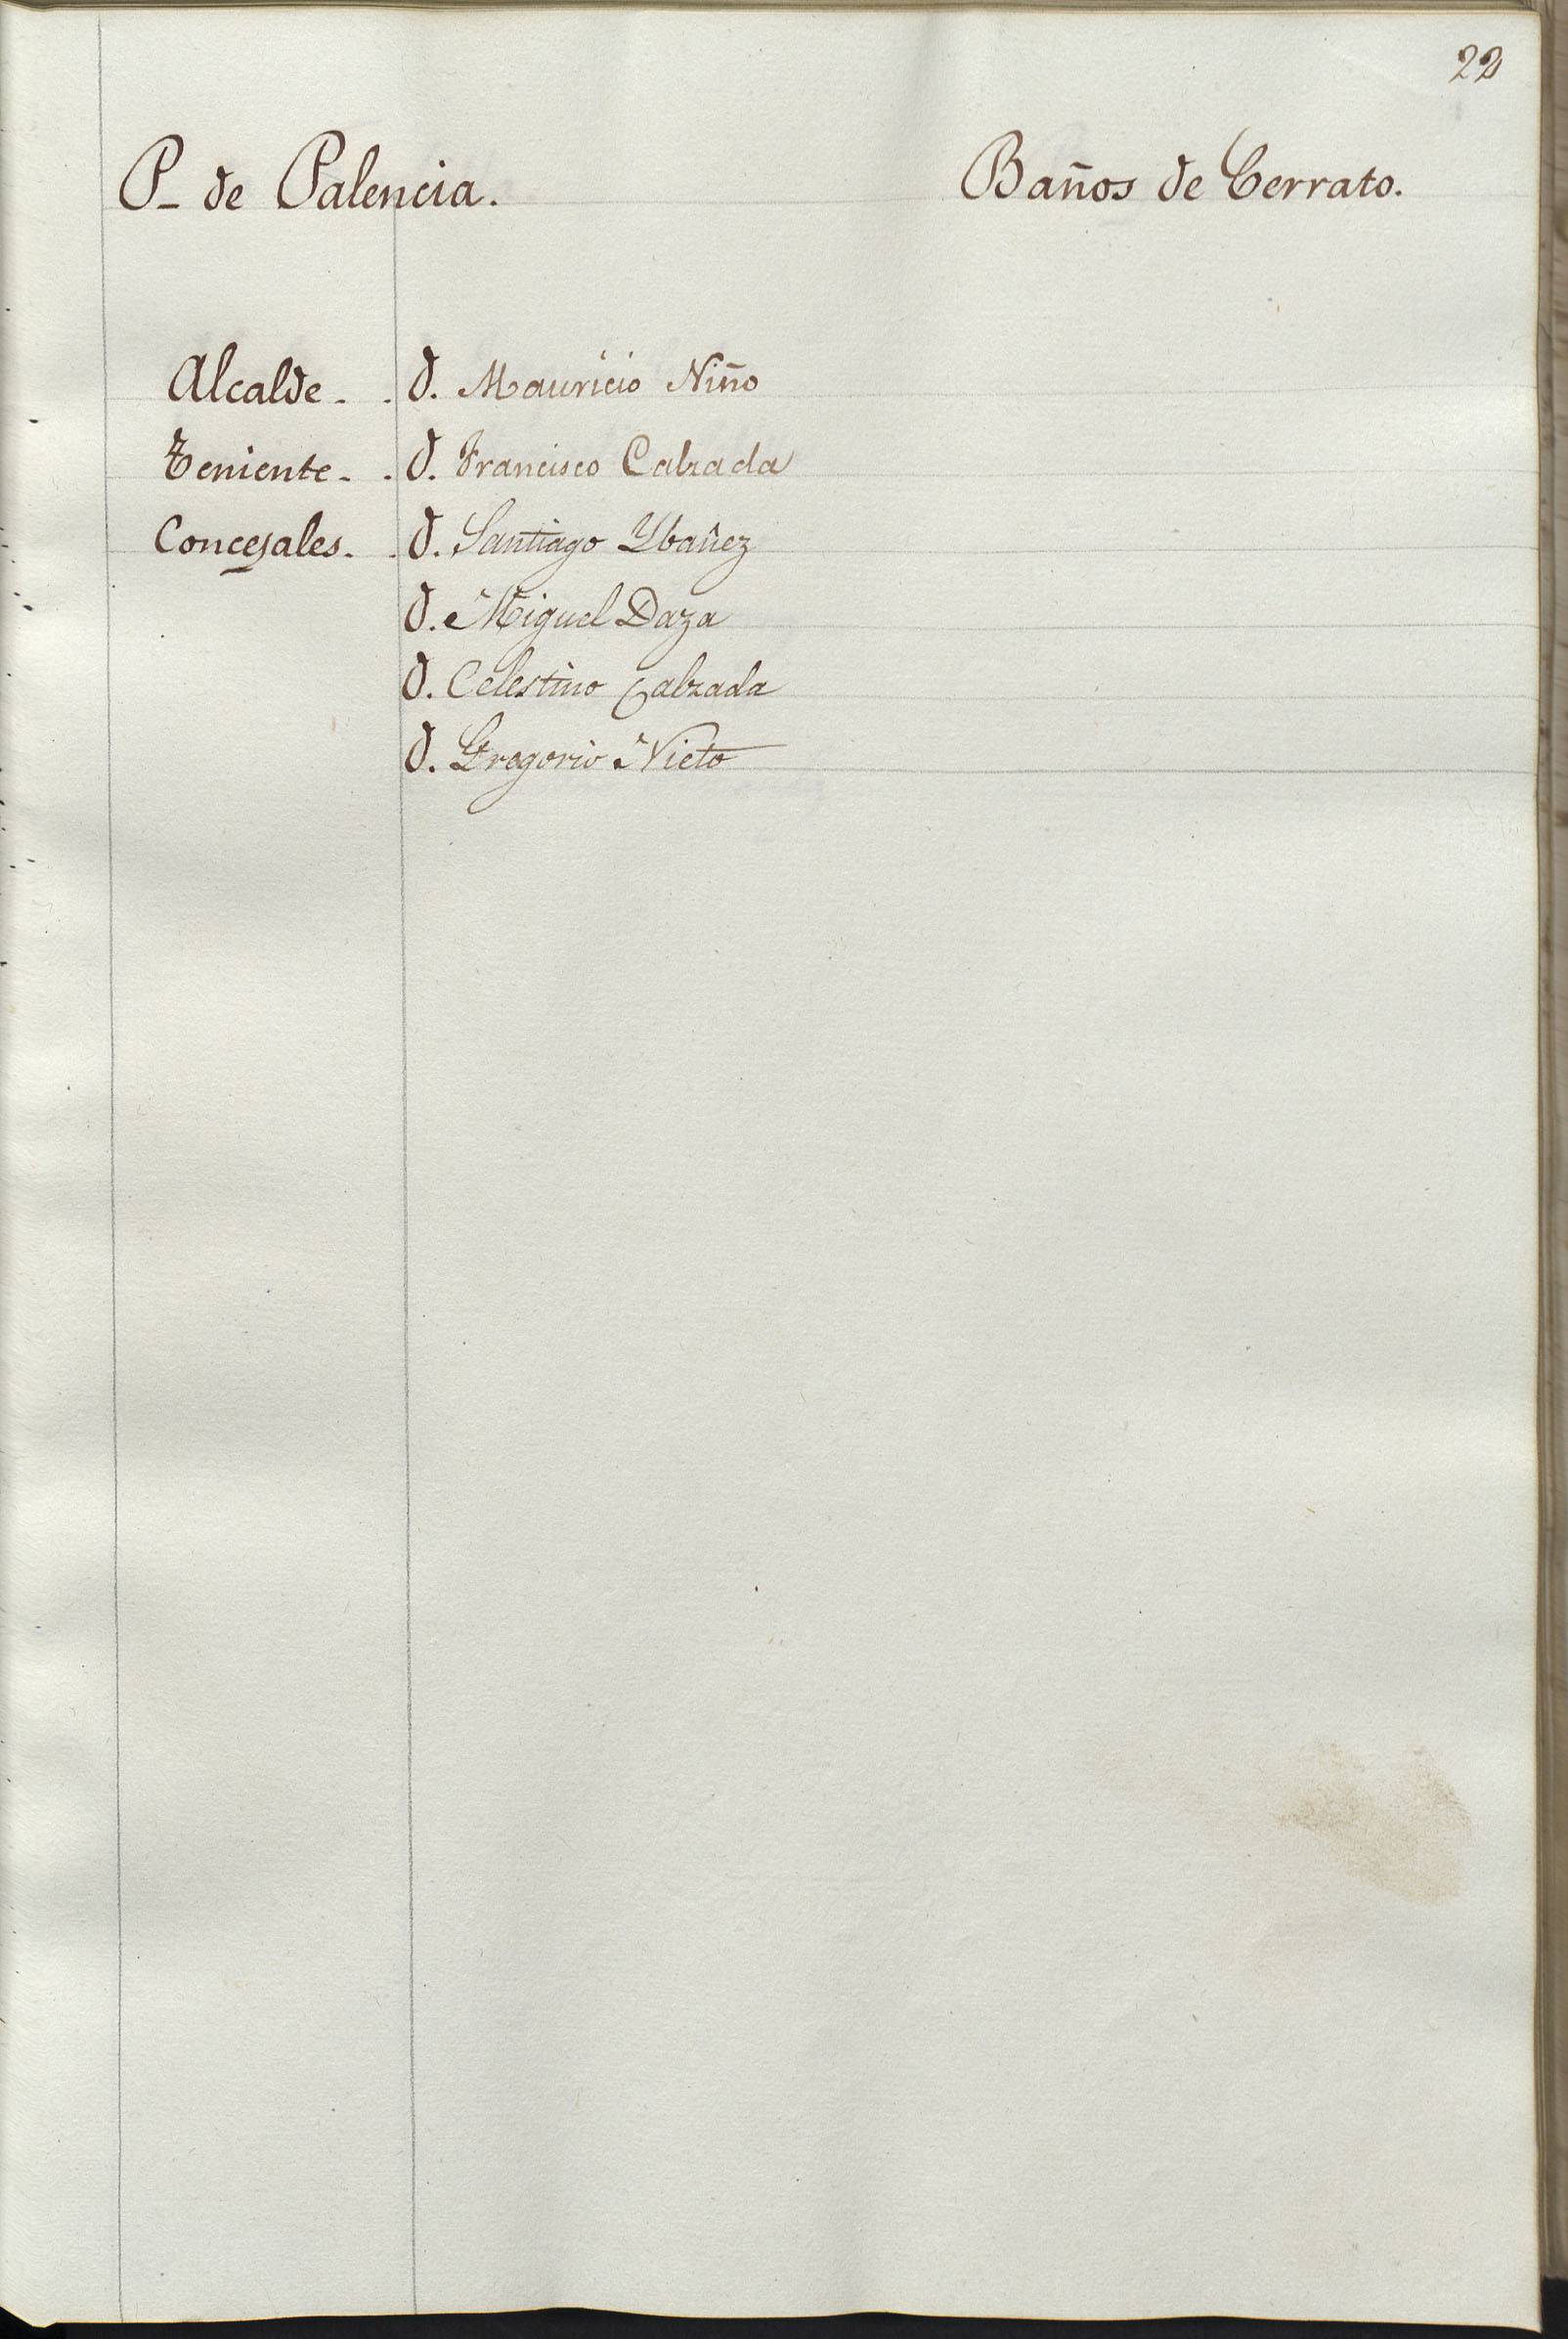 22
P_ de Palencia. Baños de Cerrato.
Alcalde - . D. Mauricio Niño
Teniente - . D. Francisco Calzada
Concejales. . D. Santiago Ybañez
D. Miguel Daza
D. Celestino Calzada
D. Gregorio Nieto